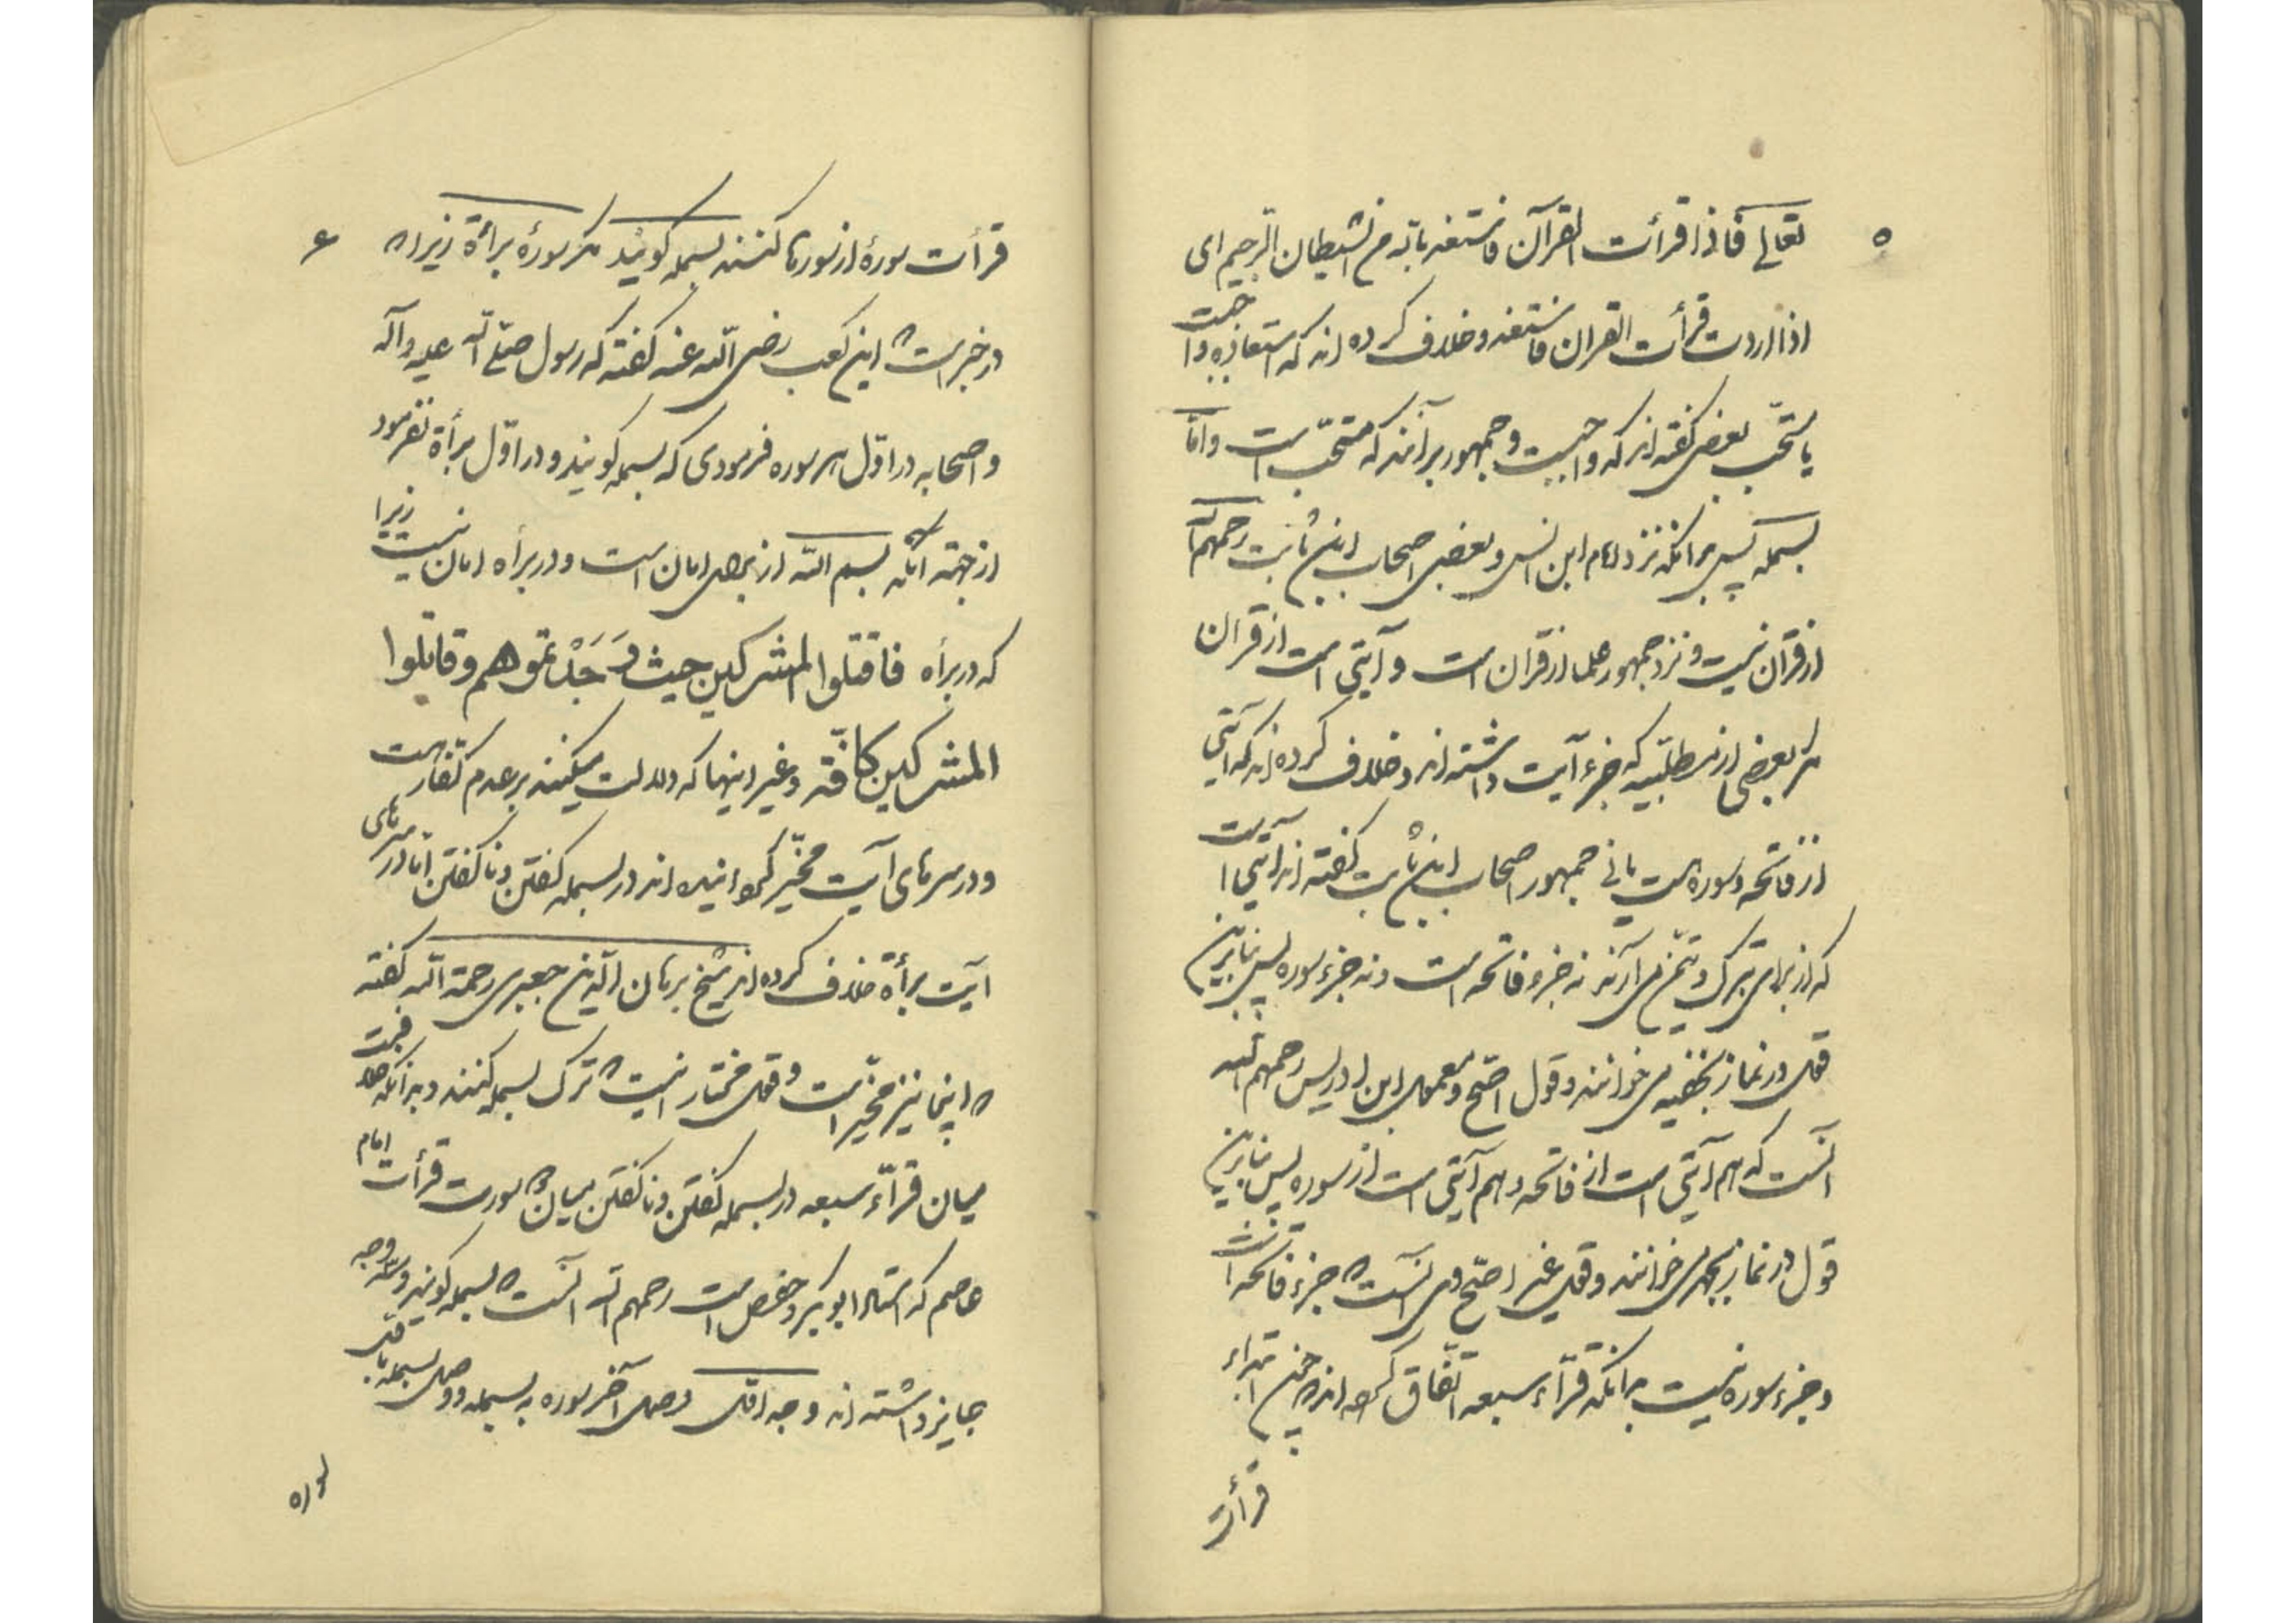 ۵
تعالی فاذا قرأت القرآن فاستعذ بالله من الشیطان الرجیم ای
اذا اردت قرأت القران فاستعذ و خلاف کرده اند که استعاذه واجبست
یا مستحب بعضی گفته اند که واجبست و جمهور برآنند که مستحب است و امّا
بسمله پس بدانکه نزد امام ابن انس و بعضی اصحاب ابن ثابت رحمهم الله
از قرآن نیست و نزد جمهور علما از قرآن است و آیتی است از قران
مگر بعضی از مطلبیه که جزء آیت داشته اند و خلاف کرده اند که آیتی
از فاتحه و سوره هست یا نی جمهور اصحاب ابن ثابت گفته اند آیتی است
که از برای تبرک و تیمّن می آرند نه جزء فاتحه است و نه جزء سوره پس بنابرین
قول در نماز بخفیه می خوانند و قول اصحّ و معمول ابن ادریس رحمهم الله
آنست که هم آیتی است از فاتحه و هم آیتی است از سوره پس بنابرین
قول در نماز بجهر می خوانند و قول غیر اصحّ وی آنست که جزء فاتحه است
و جزء سوره نیست بدانکه قرّاء سبعه اتّفاق کرده اند که چون ابتداء
قرأت
۶
قرأت سورهٔ از سورها کنند بسمله گویند مگر سورهٔ برأة زیرا که
در خبر است که ابن کعب رضی الله عنه گفته که رسول صلّی الله علیه و آله
و اصحابه در اوّل هر سوره فرمودی که بسمله گویند و در اوّل برأة نفرمود
از جهته آنکه بسم الله از برای امان است و در برأه امان نیست زیرا
که در برأه فاقتلوا المشرکین حیث وَجَدْتموهم و قاتلوا
المشرکین کافّة و غیر اینها که دلالت میکنند بر عدم امان کفّار هست
و در سرهای آیت مخیّر گردانیده اند در بسمله گفتن و نا گفتن امّا در سرهای
آیت برأة خلاف کرده اند شیخ برهان الدین جعبری رحمة الله گفته
که اینجا نیز مخیّر است و قول مختار اینست که ترک بسمله کنند و بدانکه خلافست
میان قرّاء سبعه در بسمله گفتن و نا گفتن میان دو سورت قرأت امام
عاصم که استاد ابوبکر و حفص است رحمهم الله آنست که بسمله گویند و سه وجه
جایز داشته اند وجه اوّل وصل آخر سوره به بسمله و وصل بسمله با اوّل
سوره